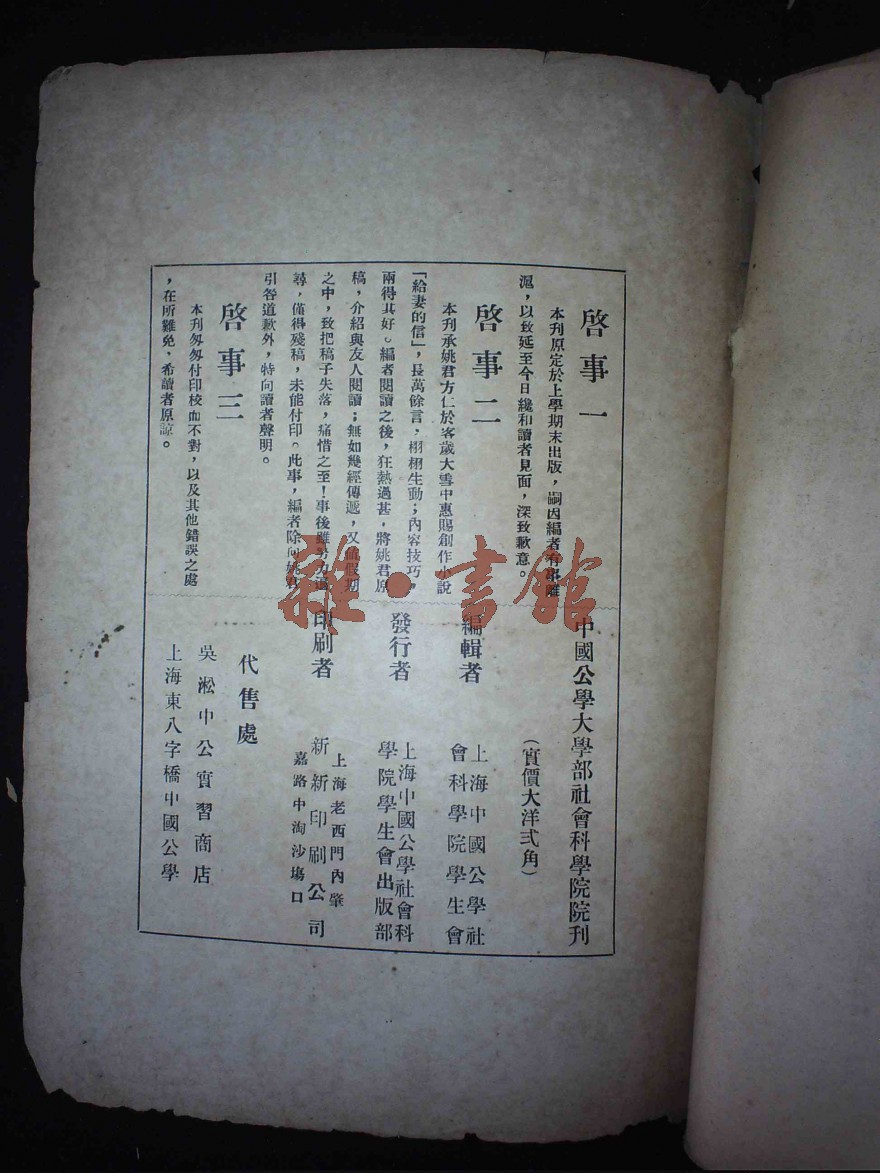 啓事一
本刊原定於上學期末出版，嗣因編者有事離
滬，以致延至今日纔和讀者見面，深致歉意。
啓事二
本刊承姚君方仁於客歲大雪中惠賜創作小說
「給妻的信」，長萬餘言，栩栩生動；內容技巧，
兩得其好。編者閱讀之後，狂熱過甚，將姚君原
稿，介紹與友人閱讀；無如幾經傳遞，又值假期
之中，致把稿子失落，痛惜之至！事後雖努力追
尋，僅得殘稿，未能付印。此事，編者除向姚君
引咎道歉外，特向讀者聲明。
啓事三
本刊匆匆付印校而不對，以及其他錯誤之處
，在所難免，希讀者原諒。
中國公學大學部社會科學院院刊
（實價大洋弍角）
編輯者
上海中國公學社
會科學院學生會
發行者
上海中國公學社會科
學院學生會出版部
印刷者
上海老西門內肇
新新印刷公司
嘉路中淘沙塲口
代售處
吳淞中公實習商店
上海東八字橋中國公學
雜·書館